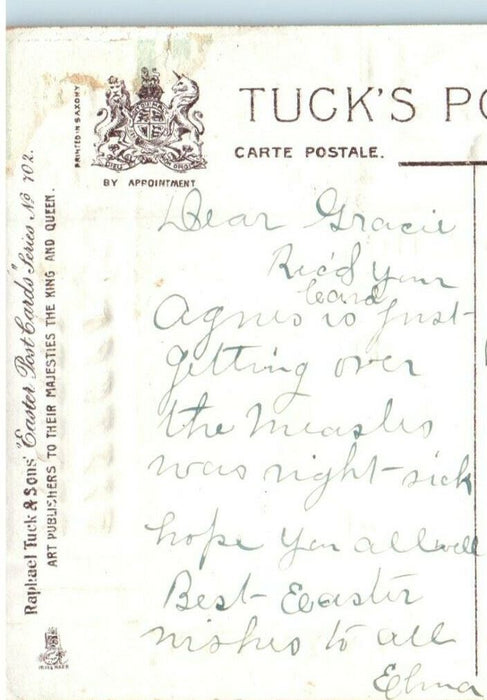 PRINTED IN SAXONY
TUCK'S PO
CARTE POSTALE.
BY APPOINTMENT
Raphael Tuck & Sons' "Easter Post Cards" Series No 102.
ART PUBLISHERS TO THEIR MAJESTIES THE KING AND QUEEN.
Dear Gracie
Rec'd your
Card
Agnes is just
getting over
the Measles
was right sick
hope you all well
Best Easter
wishes to all
Elma